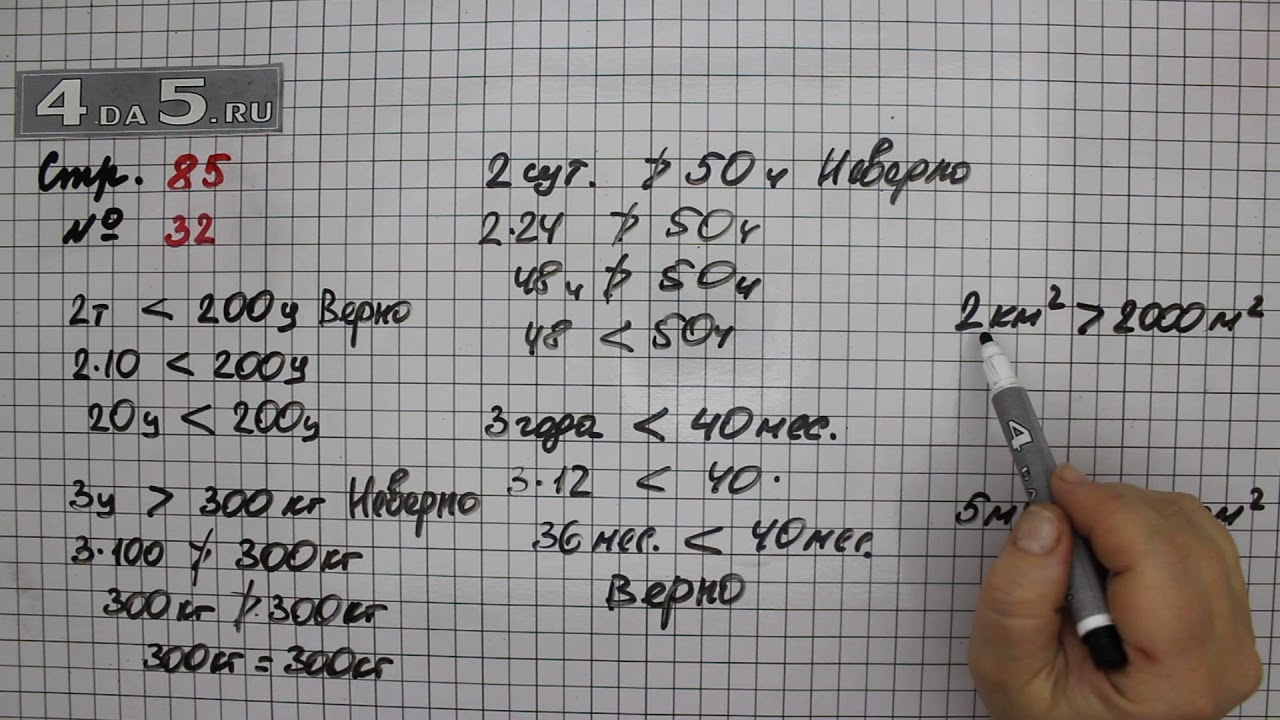 4 DA 5.RU
Стр. 85
№ 32
2т < 200ц Верно
2·10 < 200ц
20ц < 200ц
3ц > 300кг Неверно
3·100 ≯ 300кг
300кг ≯ 300кг
300кг = 300кг
2 сут. ≯ 50ч Неверно
2·24 ≯ 50ч
48ч ≯ 50ч
48 < 50ч
3 года < 40 мес.
3·12 < 40·
36 мес. < 40 мес.
Верно
2 км² > 2000 м²
5м
м²
4